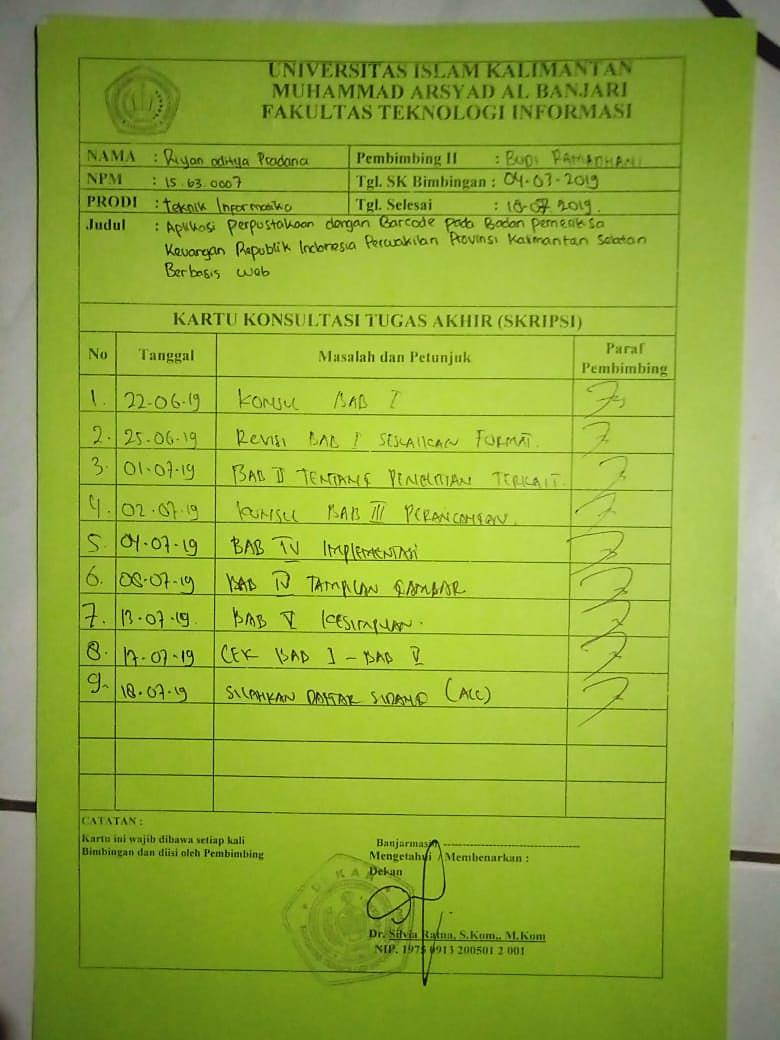 UNIVERSITAS ISLAM KALIMANTAN
MUHAMMAD ARSYAD AL BANJARI
FAKULTAS TEKNOLOGI INFORMASI
NAMA : Riyan aditya Pradana Pembimbing II : BUDI RAMADHANI
NPM : 15.63.0007 Tgl. SK Bimbingan : 04-03-2019
PRODI : Teknik Informatika Tgl. Selesai : 18-07-2019.
Judul : Aplikasi Perpustakaan dengan Barcode pada Badan Pemeriksa
Keuangan Republik Indonesia Perwakilan Provinsi Kalimantan Selatan
Berbasis Web
KARTU KONSULTASI TUGAS AKHIR (SKRIPSI)
No Tanggal Masalah dan Petunjuk Paraf Pembimbing
1. 22-06-19 KONSUL BAB I
2. 25-06-19 REVISI BAB I SESUAIKAN FORMAT.
3. 01-07-19 BAB II TENTANG PENELITIAN TERKAIT.
4. 02-07-19 KONSUL BAB III PERANCANGAN.
5. 04-07-19 BAB IV IMPLEMENTASI
6. 08-07-19 BAB IV TAMPILAN GAMBAR
7. 13-07-19. BAB V KESIMPULAN.
8. 17-07-19 CEK BAB I - BAB V
9. 18-07-19 SILAHKAN DAFTAR SIDANG (ACC)
CATATAN :
Kartu ini wajib dibawa setiap kali
Bimbingan dan diisi oleh Pembimbing
Banjarmasin, ------------------------------
Mengetahui / Membenarkan :
Dekan
Dr. Silvia Ratna, S.Kom., M.Kom
NIP. 1975 0913 200501 2 001